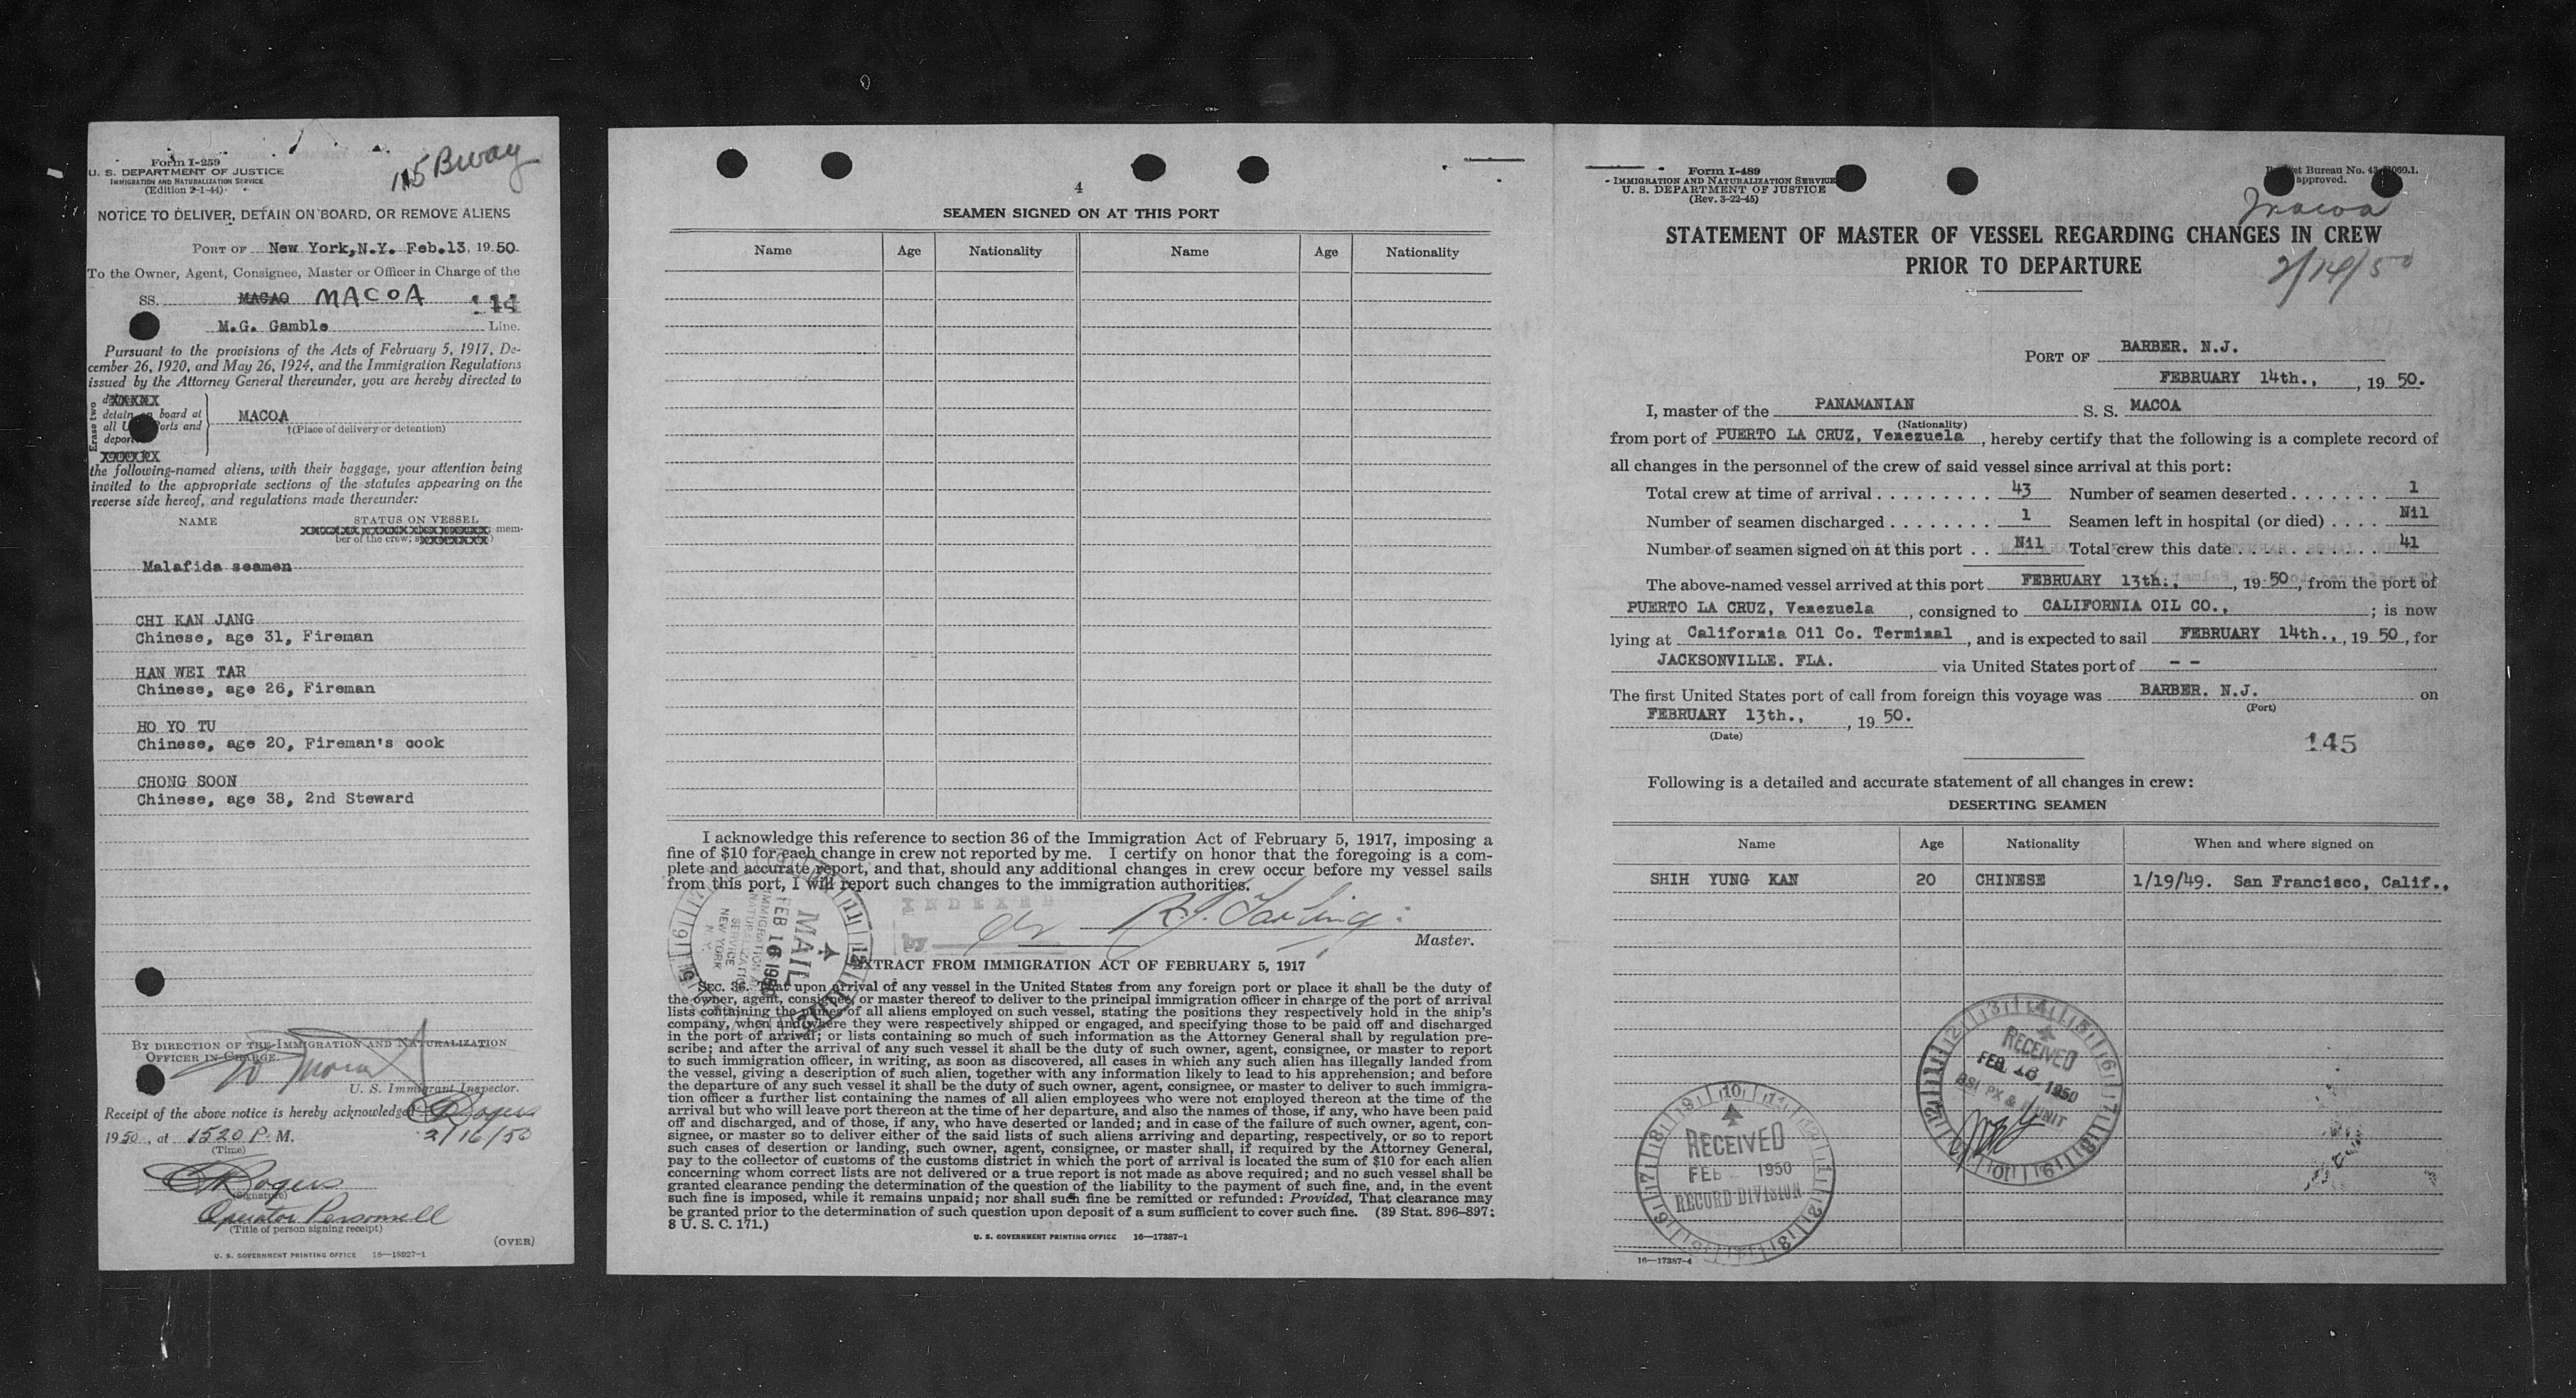 Form I-259
U. S. DEPARTMENT OF JUSTICE
IMMIGRATION AND NATURALIZATION SERVICE
(Edition 2-1-44)
115 Bway
NOTICE TO DELIVER, DETAIN ON BOARD, OR REMOVE ALIENS
PORT OF New York, N.Y. Feb. 13, 1950.
To the Owner, Agent, Consignee, Master or Officer in Charge of the
SS. MACAO MACOA 144
M.G. Gamble Line.
Pursuant to the provisions of the Acts of February 5, 1917, De-
cember 26, 1920, and May 26, 1924, and the Immigration Regulations
issued by the Attorney General thereunder, you are hereby directed to
Erase two
detain on board at
all U. Ports and
deport
MACOA
†(Place of delivery or detention)
the following-named aliens, with their baggage, your attention being
invited to the appropriate sections of the statutes appearing on the
reverse side hereof, and regulations made thereunder:
NAME STATUS ON VESSEL
mem-
ber of the crew;
Malafida seamen
CHI KAN JANG
Chinese, age 31, Fireman
HAN WEI TAR
Chinese, age 26, Fireman
HO YO TU
Chinese, age 20, Fireman's cook
CHONG SOON
Chinese, age 38, 2nd Steward
BY DIRECTION OF THE IMMIGRATION AND NATURALIZATION
OFFICER IN CHARGE.
U. S. Immigrant Inspector.
Receipt of the above notice is hereby acknowledged
1950, at 1520 P. M. 2/16/50
(Time)
(Signature)
Operator Personnell
(Title of person signing receipt)
(OVER)
U. S. GOVERNMENT PRINTING OFFICE 16—18027-1
4
SEAMEN SIGNED ON AT THIS PORT
Name Age Nationality Name Age Nationality
I acknowledge this reference to section 36 of the Immigration Act of February 5, 1917, imposing a
fine of $10 for each change in crew not reported by me. I certify on honor that the foregoing is a com-
plete and accurate report, and that, should any additional changes in crew occur before my vessel sails
from this port, I will report such changes to the immigration authorities.
INDEXED
by
Master.
MAIL
FEB 16 1950
IMMIGRATION AND
NATURALIZATION
SERVICE
NEW YORK
N. Y.
EXTRACT FROM IMMIGRATION ACT OF FEBRUARY 5, 1917
SEC. 36. That upon arrival of any vessel in the United States from any foreign port or place it shall be the duty of
the owner, agent, consignee, or master thereof to deliver to the principal immigration officer in charge of the port of arrival
lists containing the names of all aliens employed on such vessel, stating the positions they respectively hold in the ship's
company, when and where they were respectively shipped or engaged, and specifying those to be paid off and discharged
in the port of arrival; or lists containing so much of such information as the Attorney General shall by regulation pre-
scribe; and after the arrival of any such vessel it shall be the duty of such owner, agent, consignee, or master to report
to such immigration officer, in writing, as soon as discovered, all cases in which any such alien has illegally landed from
the vessel, giving a description of such alien, together with any information likely to lead to his apprehension; and before
the departure of any such vessel it shall be the duty of such owner, agent, consignee, or master to deliver to such immigra-
tion officer a further list containing the names of all alien employees who were not employed thereon at the time of the
arrival but who will leave port thereon at the time of her departure, and also the names of those, if any, who have been paid
off and discharged, and of those, if any, who have deserted or landed; and in case of the failure of such owner, agent, con-
signee, or master so to deliver either of the said lists of such aliens arriving and departing, respectively, or so to report
such cases of desertion or landing, such owner, agent, consignee, or master shall, if required by the Attorney General,
pay to the collector of customs of the customs district in which the port of arrival is located the sum of $10 for each alien
concerning whom correct lists are not delivered or a true report is not made as above required; and no such vessel shall be
granted clearance pending the determination of the question of the liability to the payment of such fine, and, in the event
such fine is imposed, while it remains unpaid; nor shall such fine be remitted or refunded: Provided, That clearance may
be granted prior to the determination of such question upon deposit of a sum sufficient to cover such fine. (39 Stat. 896–897;
8 U. S. C. 171.)
U. S. GOVERNMENT PRINTING OFFICE 16—17387-1
Form I-489
IMMIGRATION AND NATURALIZATION SERVICE
U. S. DEPARTMENT OF JUSTICE
(Rev. 3-22-45)
Bureau No. 43
approved.
Macoa
STATEMENT OF MASTER OF VESSEL REGARDING CHANGES IN CREW
PRIOR TO DEPARTURE
2/14/50
PORT OF BARBER. N.J.
FEBRUARY 14th., , 1950.
I, master of the PANAMANIAN S. S. MACOA
(Nationality)
from port of PUERTO LA CRUZ, Venezuela, hereby certify that the following is a complete record of
all changes in the personnel of the crew of said vessel since arrival at this port:
Total crew at time of arrival . . . . . . . . . 43 Number of seamen deserted . . . . . . . 1
Number of seamen discharged . . . . . . . . 1 Seamen left in hospital (or died) . . . . Nil
Number of seamen signed on at this port . . Nil Total crew this date . . . . . . . . . . . 41
The above-named vessel arrived at this port FEBRUARY 13th., , 1950, from the port of
PUERTO LA CRUZ, Venezuela, consigned to CALIFORNIA OIL CO., ; is now
lying at California Oil Co. Terminal, and is expected to sail FEBRUARY 14th., , 1950, for
JACKSONVILLE. FLA. via United States port of - -
The first United States port of call from foreign this voyage was BARBER. N.J. on
(Port)
FEBRUARY 13th., , 1950.
(Date)
145
Following is a detailed and accurate statement of all changes in crew:
DESERTING SEAMEN
Name Age Nationality When and where signed on
SHIH YUNG KAN 20 CHINESE 1/19/49. San Francisco, Calif.,
RECEIVED
FEB 16 1950
BSI PX & UNIT
RECEIVED
FEB 1950
RECORD DIVISION
16—17387-4